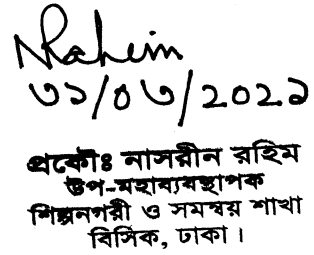 NRahim
৩১/০৩/২০২১
প্রকৌঃ নাসরীন রহিম
উপ-মহাব্যবস্থাপক
শিল্পনগরী ও সমন্বয় শাখা
বিসিক, ঢাকা।